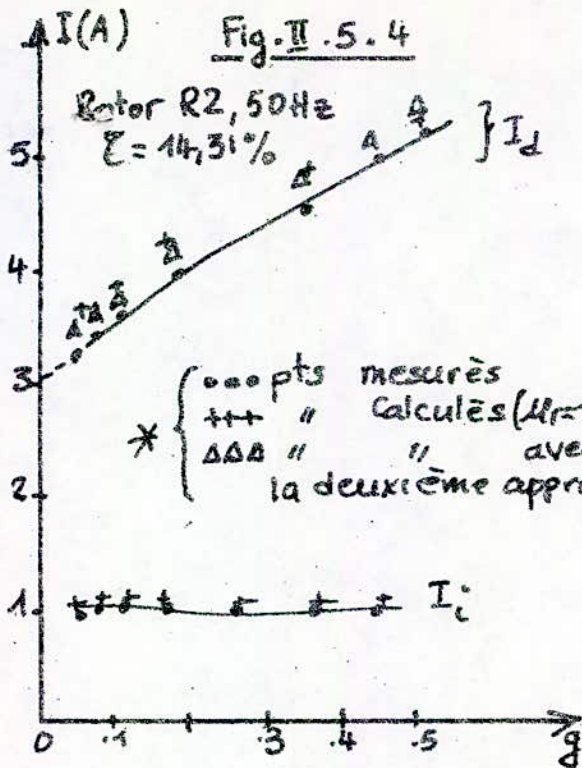 I(A)
Fig. II.5.4
Rotor R2, 50Hz
ξ = 14,31%
} I_d
5
4
3
2
1
••• pts mesurès
+++ " Calculès (μr=
* { ΔΔΔ " " ave
la deuxième appr
I_i
0 .1 .3 .4 .5 g